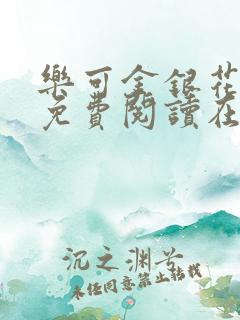 樂可金銀花
免費閱讀在
沉之渊 著
未经同意禁止转载